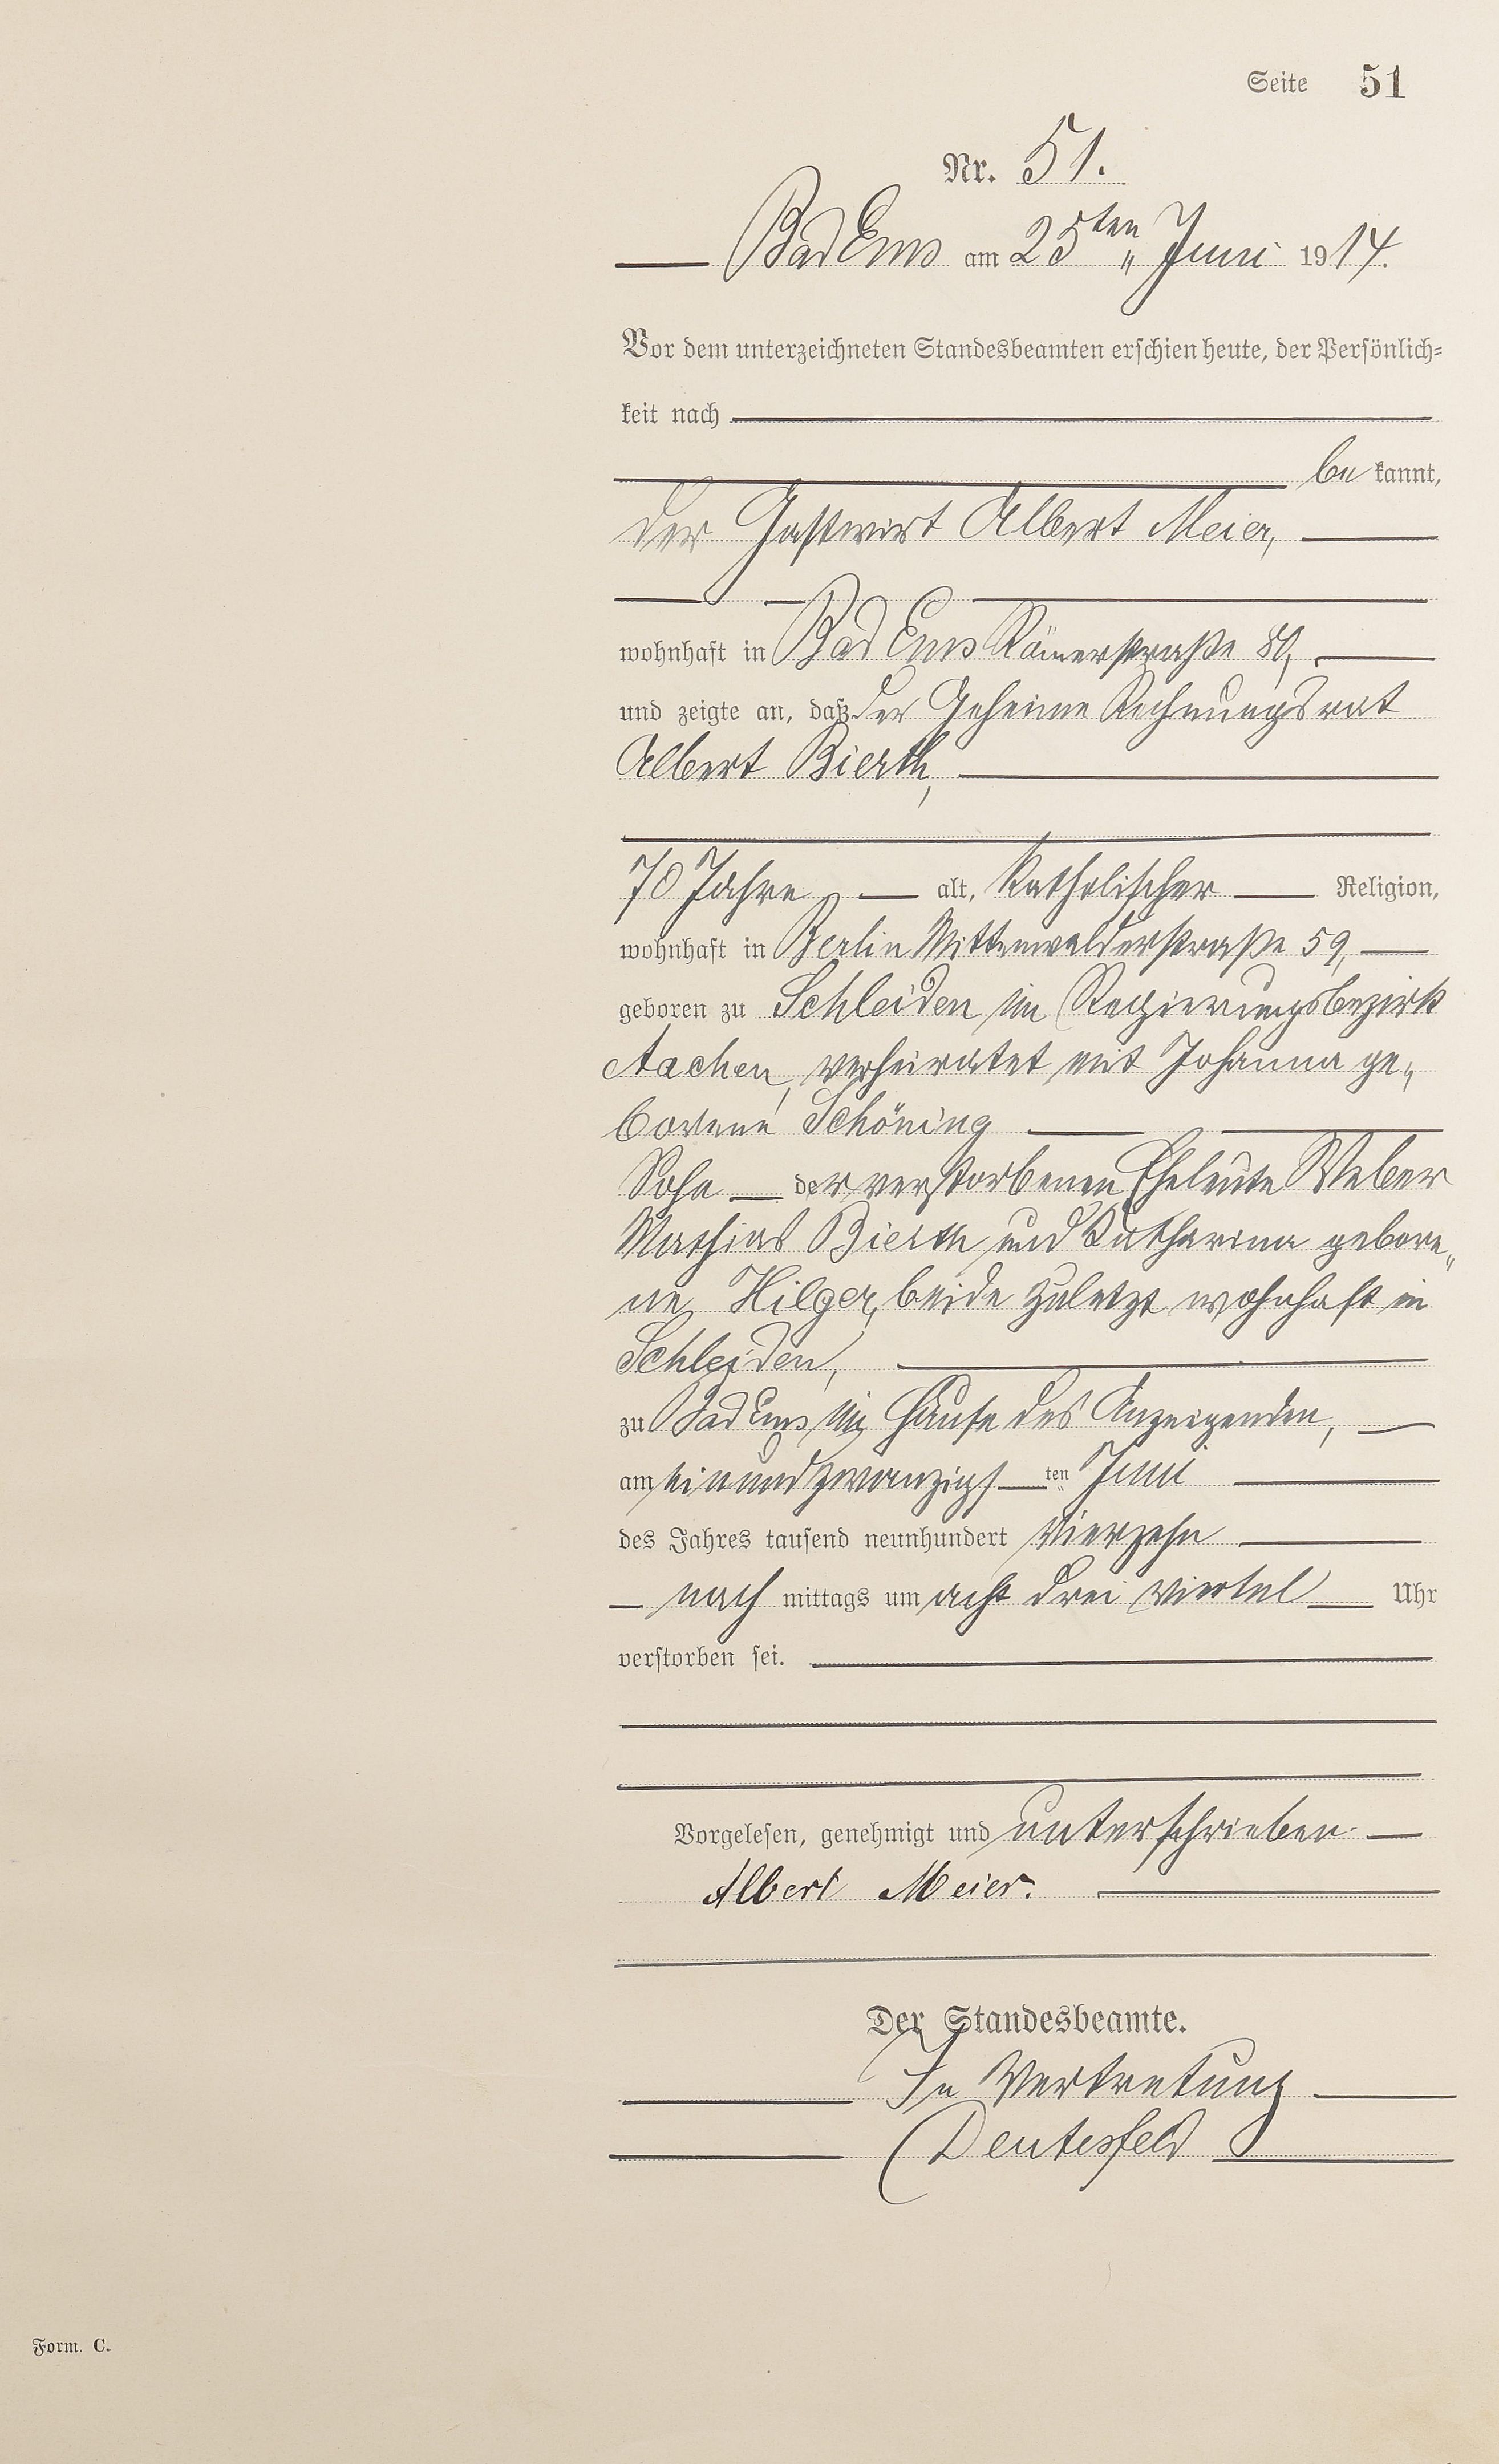 Seite 51
Nr. 51.
Bad Ems am 25ten „ Juni 1914.
Vor dem unterzeichneten Standesbeamten erschien heute, der Persönlich-
keit nach
be kannt,
der Gastwirt Albert Meier,
wohnhaft in Bad Ems Römerstraße 80,
und zeigte an, daß der Geheime Rechnungsrat
Albert Bierth,
70 Jahre alt, katholischer Religion,
wohnhaft in Berlin Mittenwalderstraße 59,
geboren zu Schleiden im Regierungsbezirk
Aachen, verheiratet mit Johanna ge„
borene Schöning
Sohn der verstorbenen Eheleute Weber
Mathias Bierth und Katharina gebore„
ne Hilger, beide zuletzt wohnhaft in
Schleiden,
zu Bad Ems im Hause des Anzeigenden,
am einundzwanzigsten Juni
des Jahres tausend neunhundert vierzehn
nach mittags um acht drei viertel Uhr
verstorben sei.
Vorgelesen, genehmigt und unterschrieben.
Albert Meier.
Der Standesbeamte.
In Vertretung
Deutesfeld
Form. C.